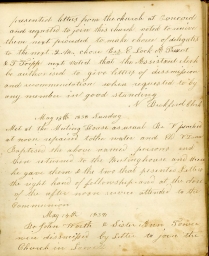 presented letters from the church at Concord
and requested to join this church voted to receive
them next proceeded to make choice of delegates
to the next Q. M. chose Brs E Lock
S T Tripp next voted that the Assistant clerk
be authorized to give letters of dismission
and recommendation when requested to by
any member in good standing
N. Bickford Clerk
May 19th 1850 Sunday
Met at the Meeting House as usual Br T
at noon repaired to the water and Br T
Baptized the above named persons and
then returned to the Meeting house and then
he gave them & the two that presented letters
the right hand of fellowship and at the close
of the afternoon service attended to the
Communion
May 19th 1850
Br John North & Sister Ann
were dismissed by Letter to join the
Church in